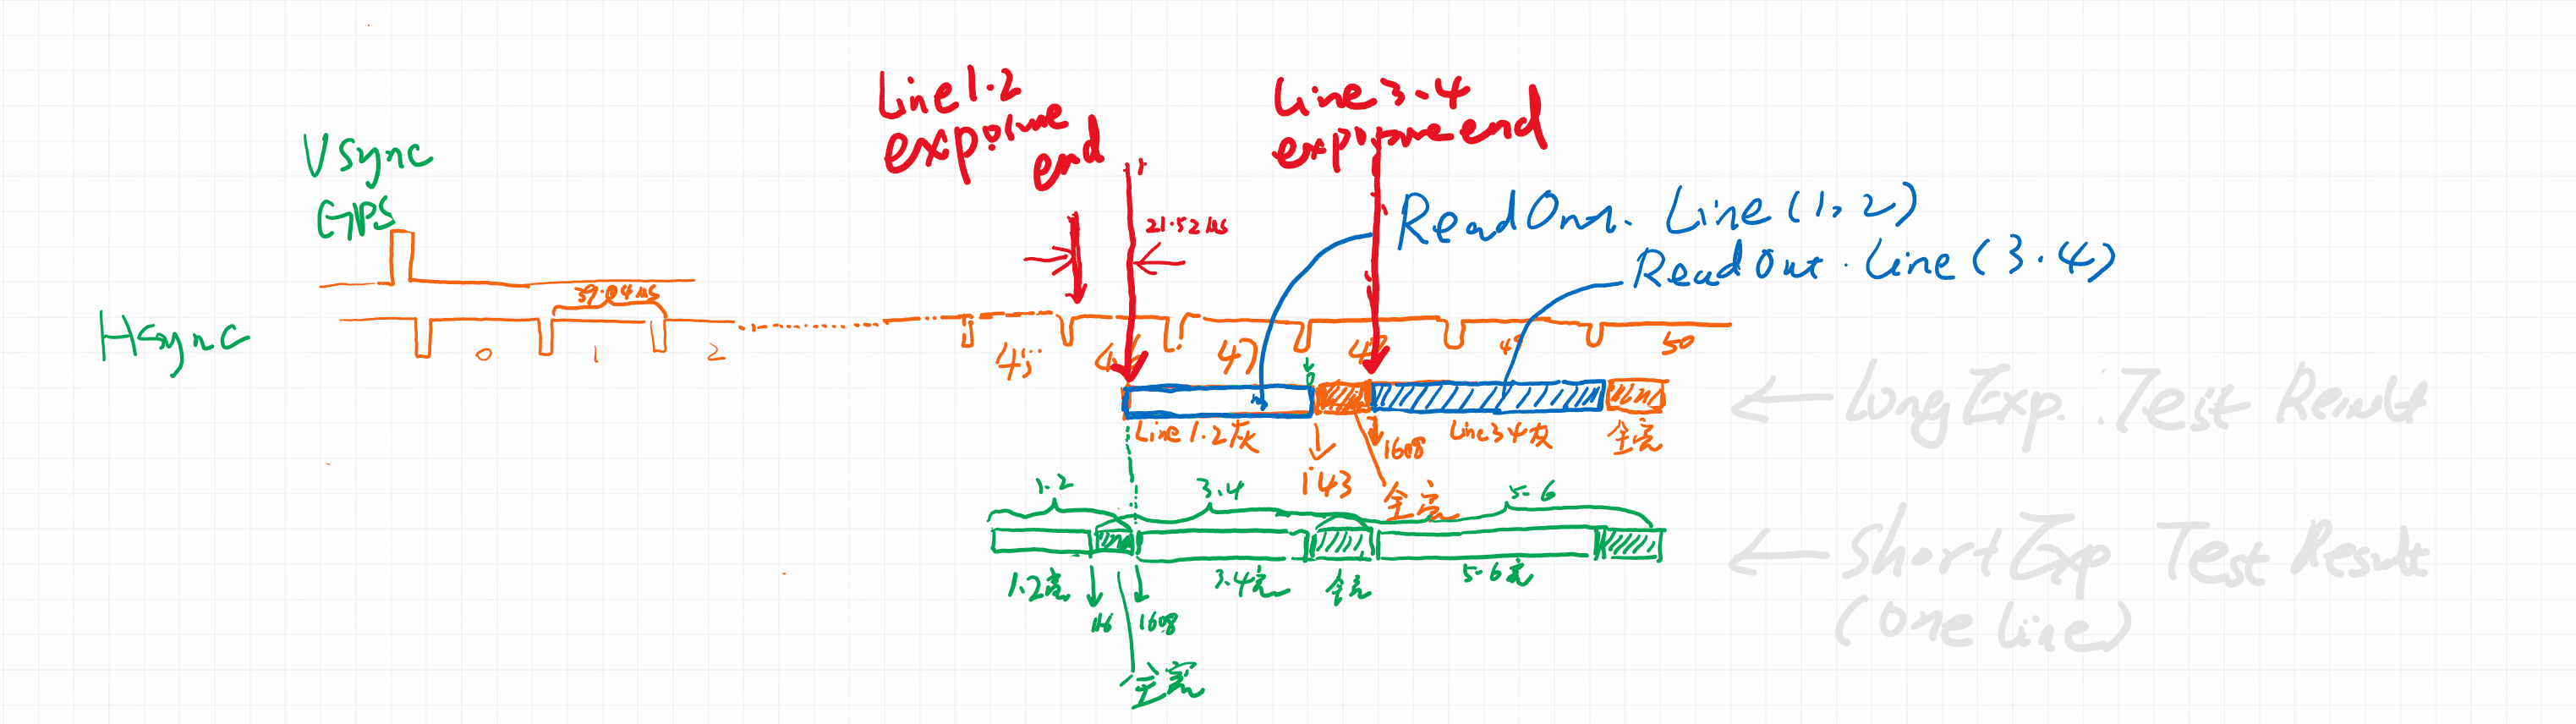 Line 1.2
exposure
end
Line 3.4
exposure end
Vsync
GPS
21.52 us
ReadOut. Line (1, 2)
ReadOut. Line (3.4)
39.04 us
Hsync
0 1 2 45 46 47 48 49 50
Line 1.2 灰
143
1608
Line 3 4 灰
全亮
全亮
← Long Exp. Test Result
1.2
3.4
5-6
1.2亮
3.4亮
全亮
5-6亮
1608
全亮
← Short Exp Test Result
(One Line)